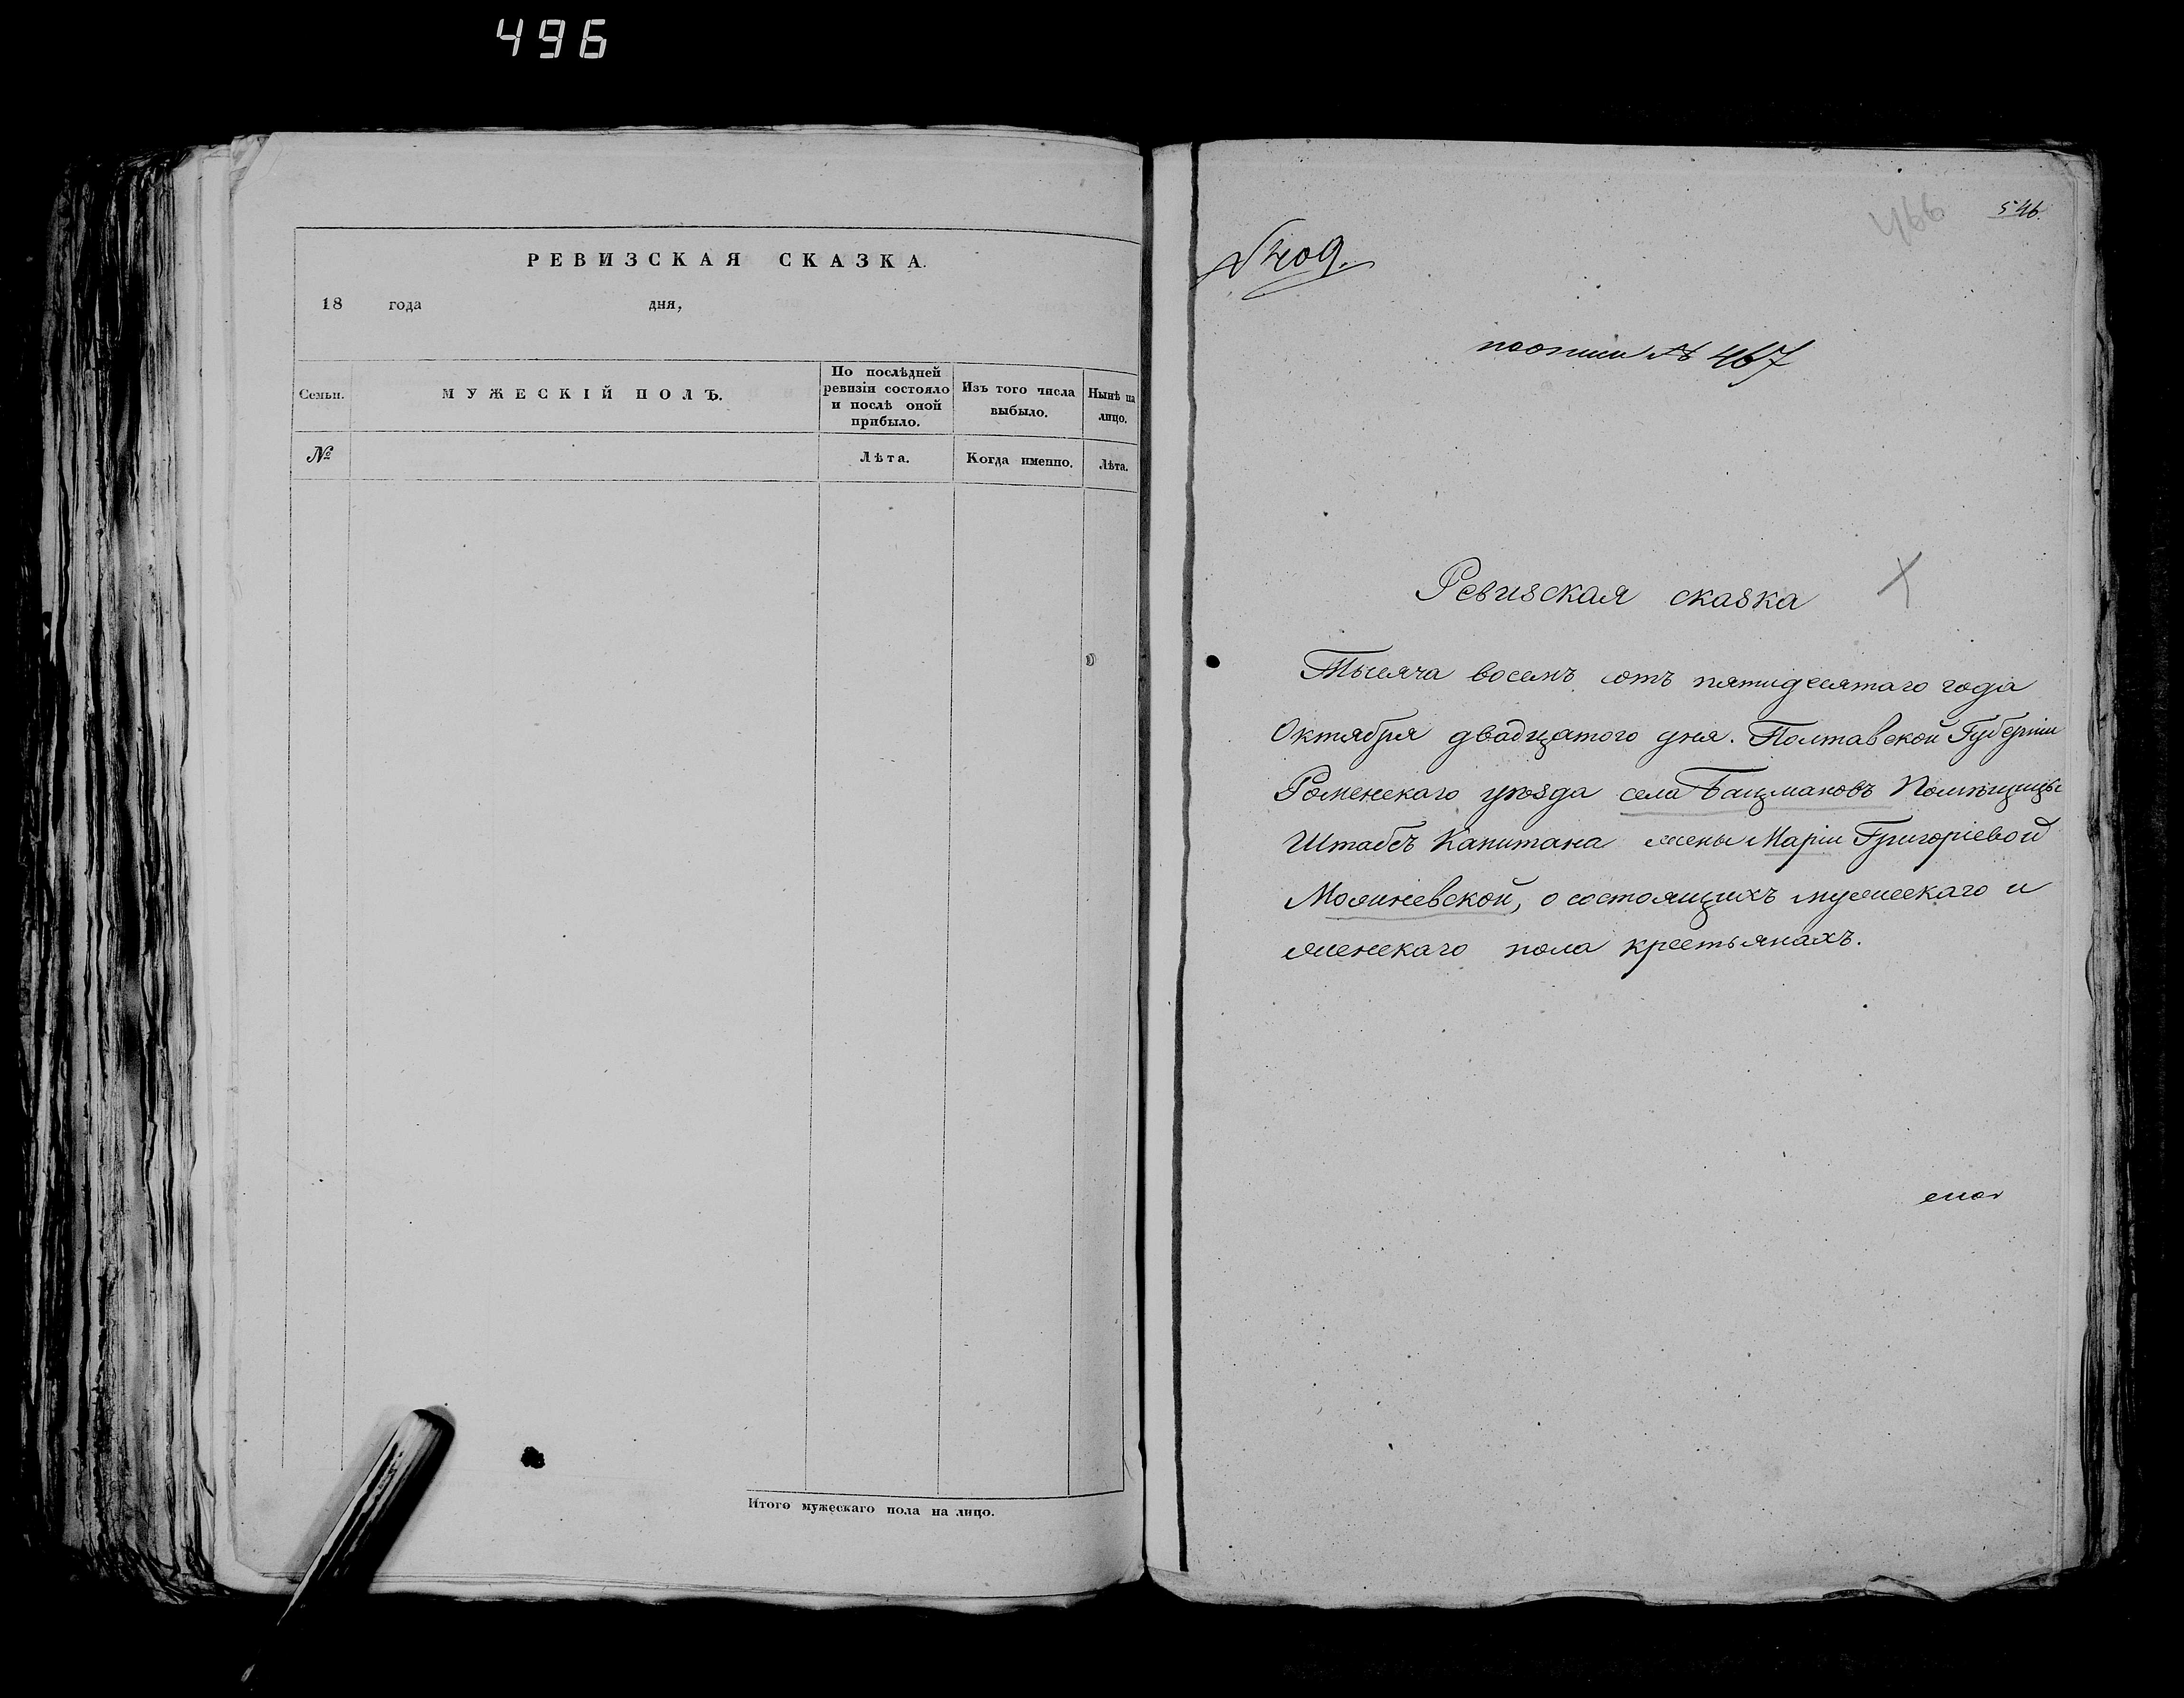 496
РЕВИЗСКАЯ СКАЗКА.
18 года дня,
Семьи.
МУЖЕСКІЙ ПОЛЪ.
По послѣдней
ревизіи состояло
и послѣ оной
прибыло.
Изъ того числа
выбыло.
Нынѣ на
лицо.
№
Лѣта.
Когда именно.
Лѣта.
Итого мужескаго пола на лицо.
466
546.
№ 409.
№ 467
Ревизская сказка
Тысяча восемъ сотъ пятидесятаго года
Октября двадцатого дня. Полтавской Губерніи
Роменскаго уѣзда села Бацмановъ Помѣщицы
Штабсъ Капитана жены Маріи Григоріевой
о состоящихъ мужескаго и
женскаго пола крестьянахъ.